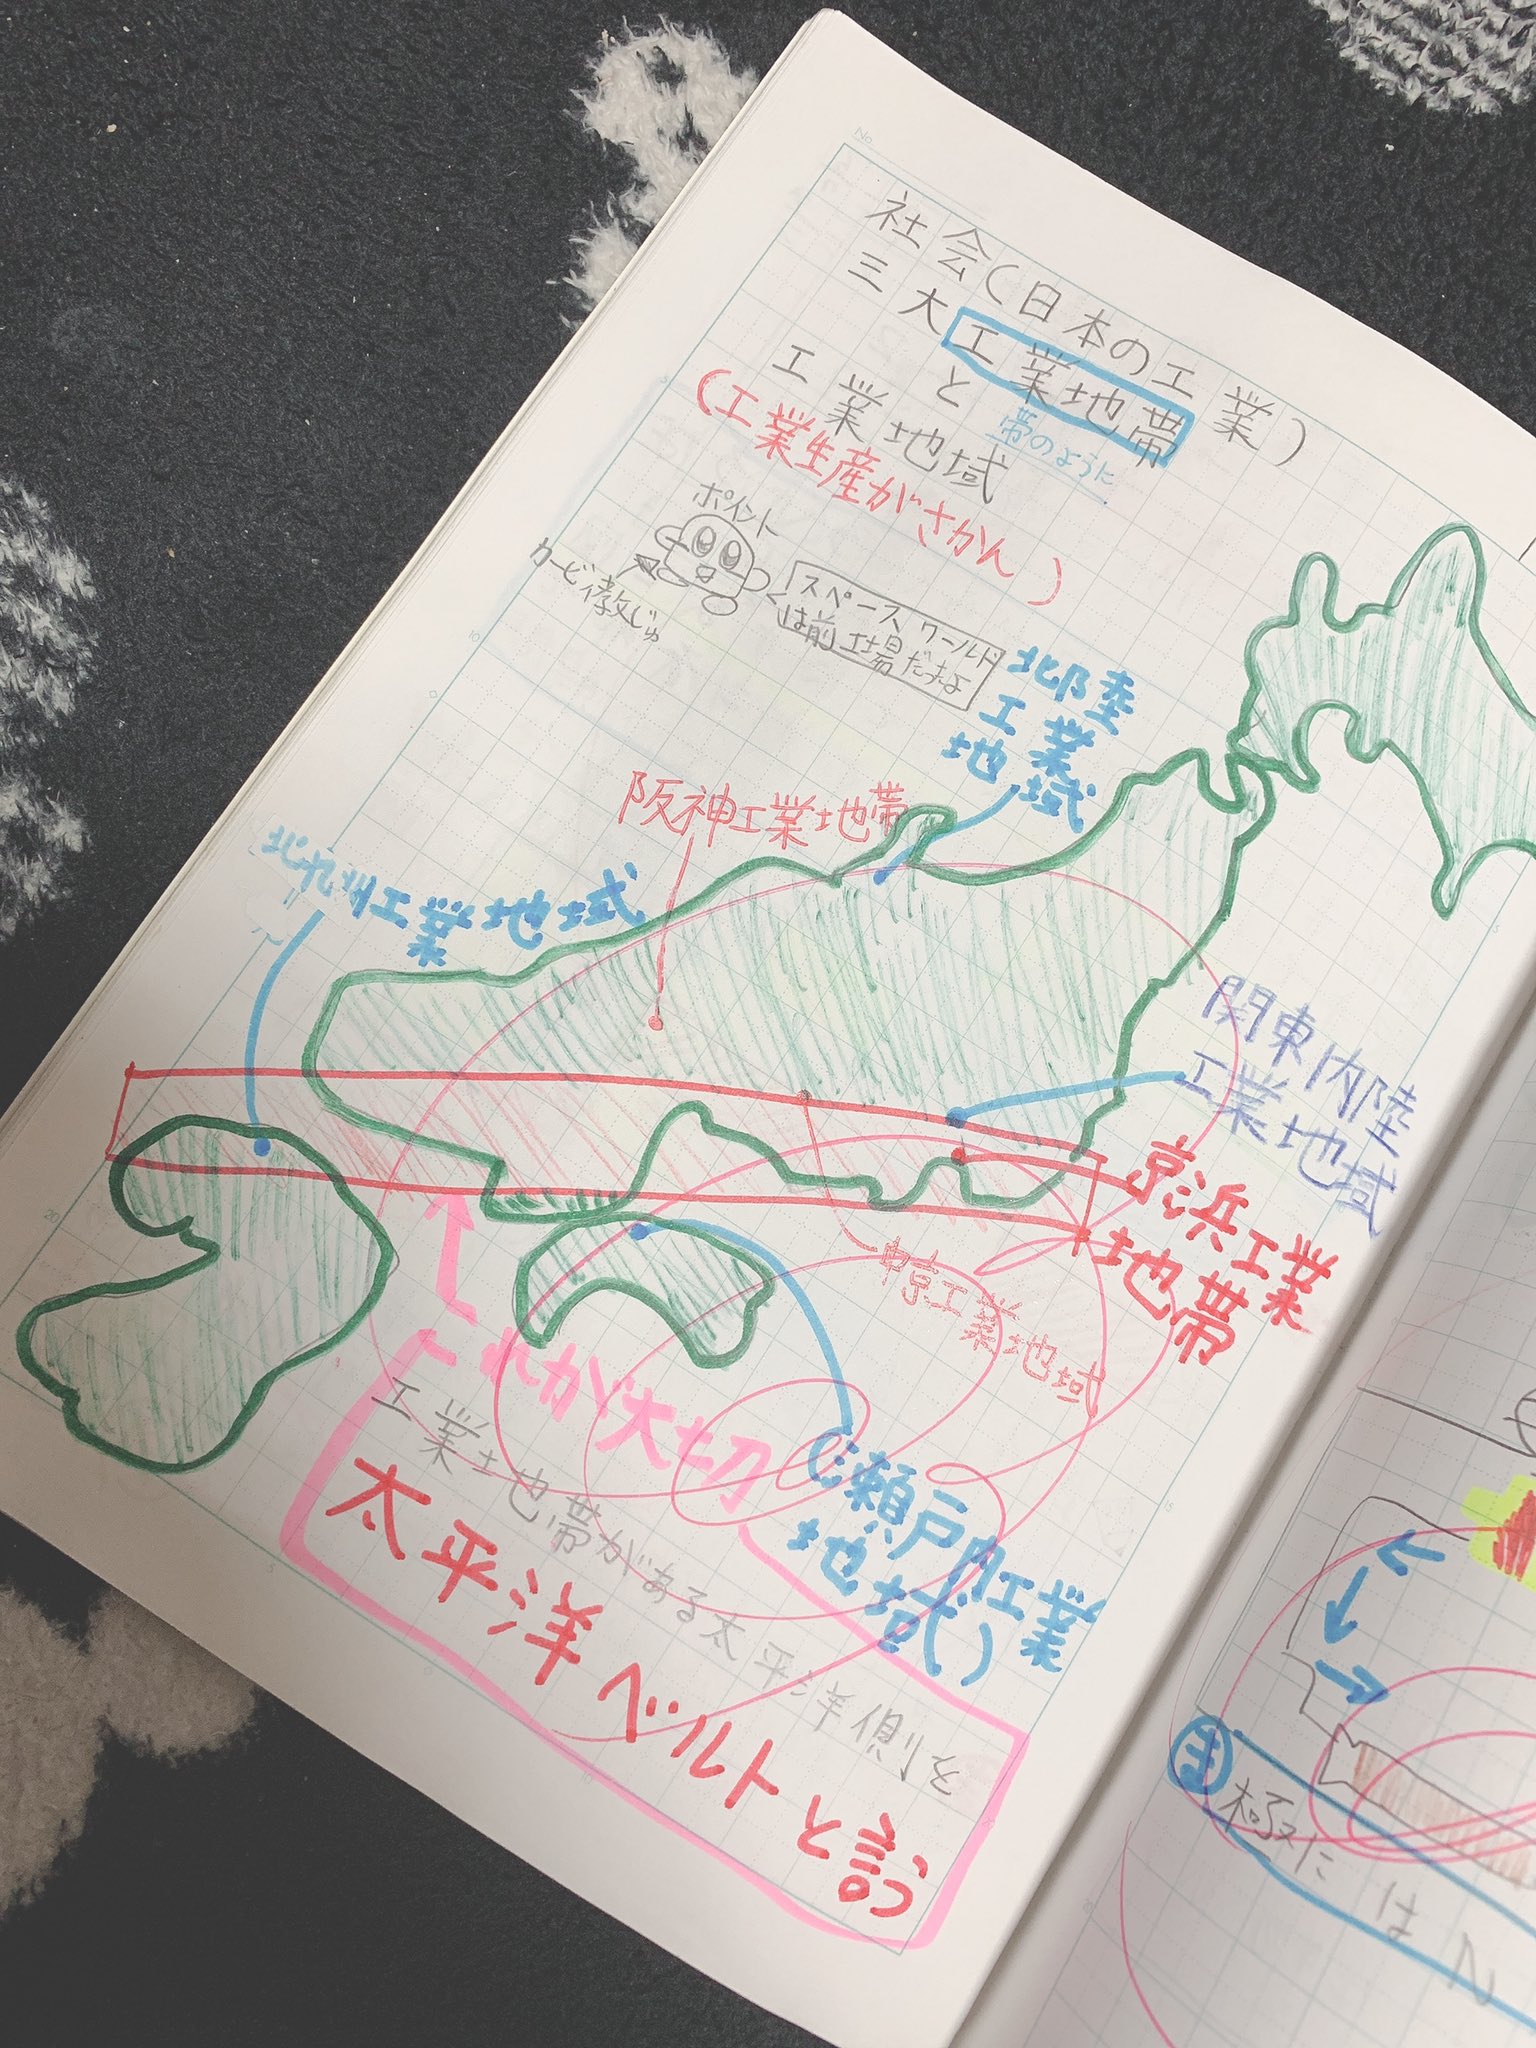 No
社会(日本の工業)
三大工業地帯
と
帯のように
工業地域
(工業生産がさかん)
ポイント
カービィ教じゅ
スペースワールド
は前工場だったよ
北陸
工業
地域
阪神工業地帯
北九州工業地域
関東内陸
工業地域
京浜工業
地帯
工業地域
これが大切
(瀬戸内工業
地域)
工業地帯がある太平洋側を
太平洋ベルトと言う
主
極にはN